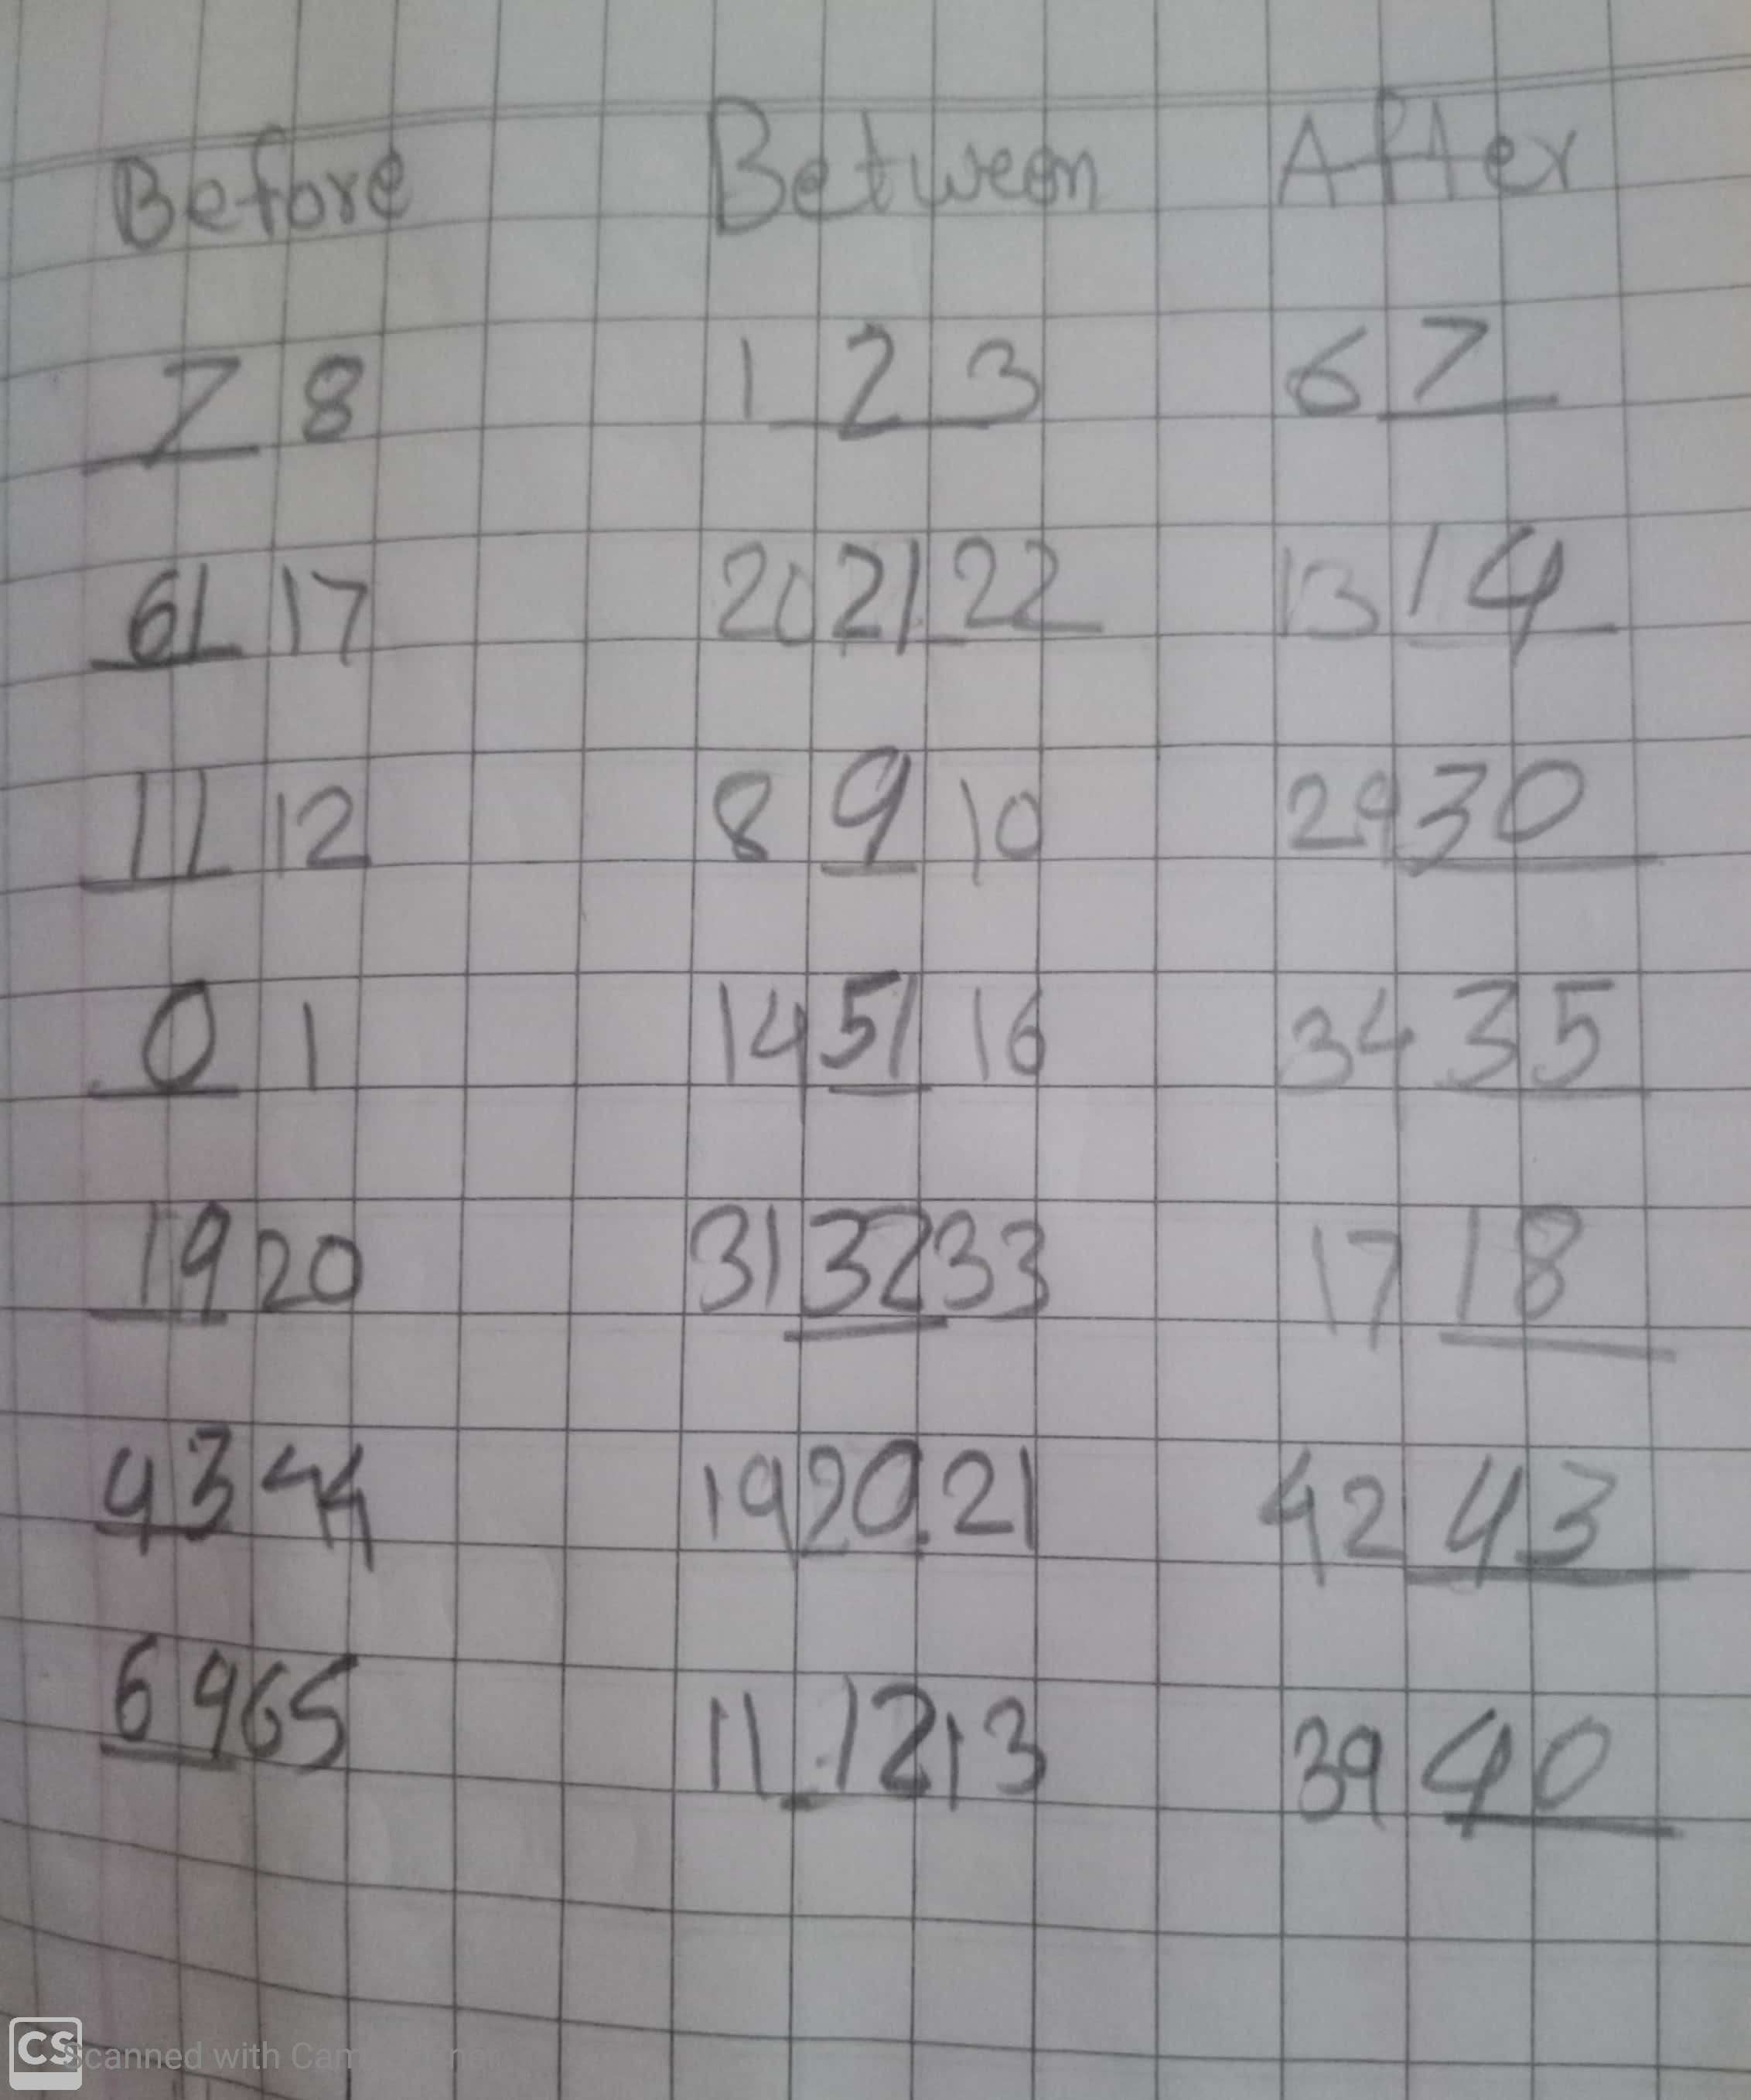 Before Between After
7 8 1 2 3 6 7
61 17 20 21 22 13 14
11 12 8 9 10 29 30
0 1 14 51 16 34 35
19 20 31 32 33 17 18
43 44 19 20 21 42 43
69 65 11 12 13 39 40
CS Scanned with